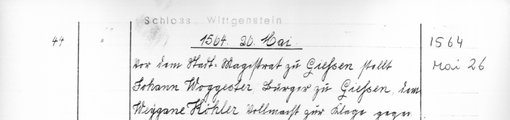 Schloss Wittgenstein
44
1564. 26. Mai.
1564
Mai 26
Vor dem Stadt-Magistrat zu Giessen stellt
Johann Woggester Bürger zu Giessen, dem
Weygane Köhler Vollmacht zur Klage gegen